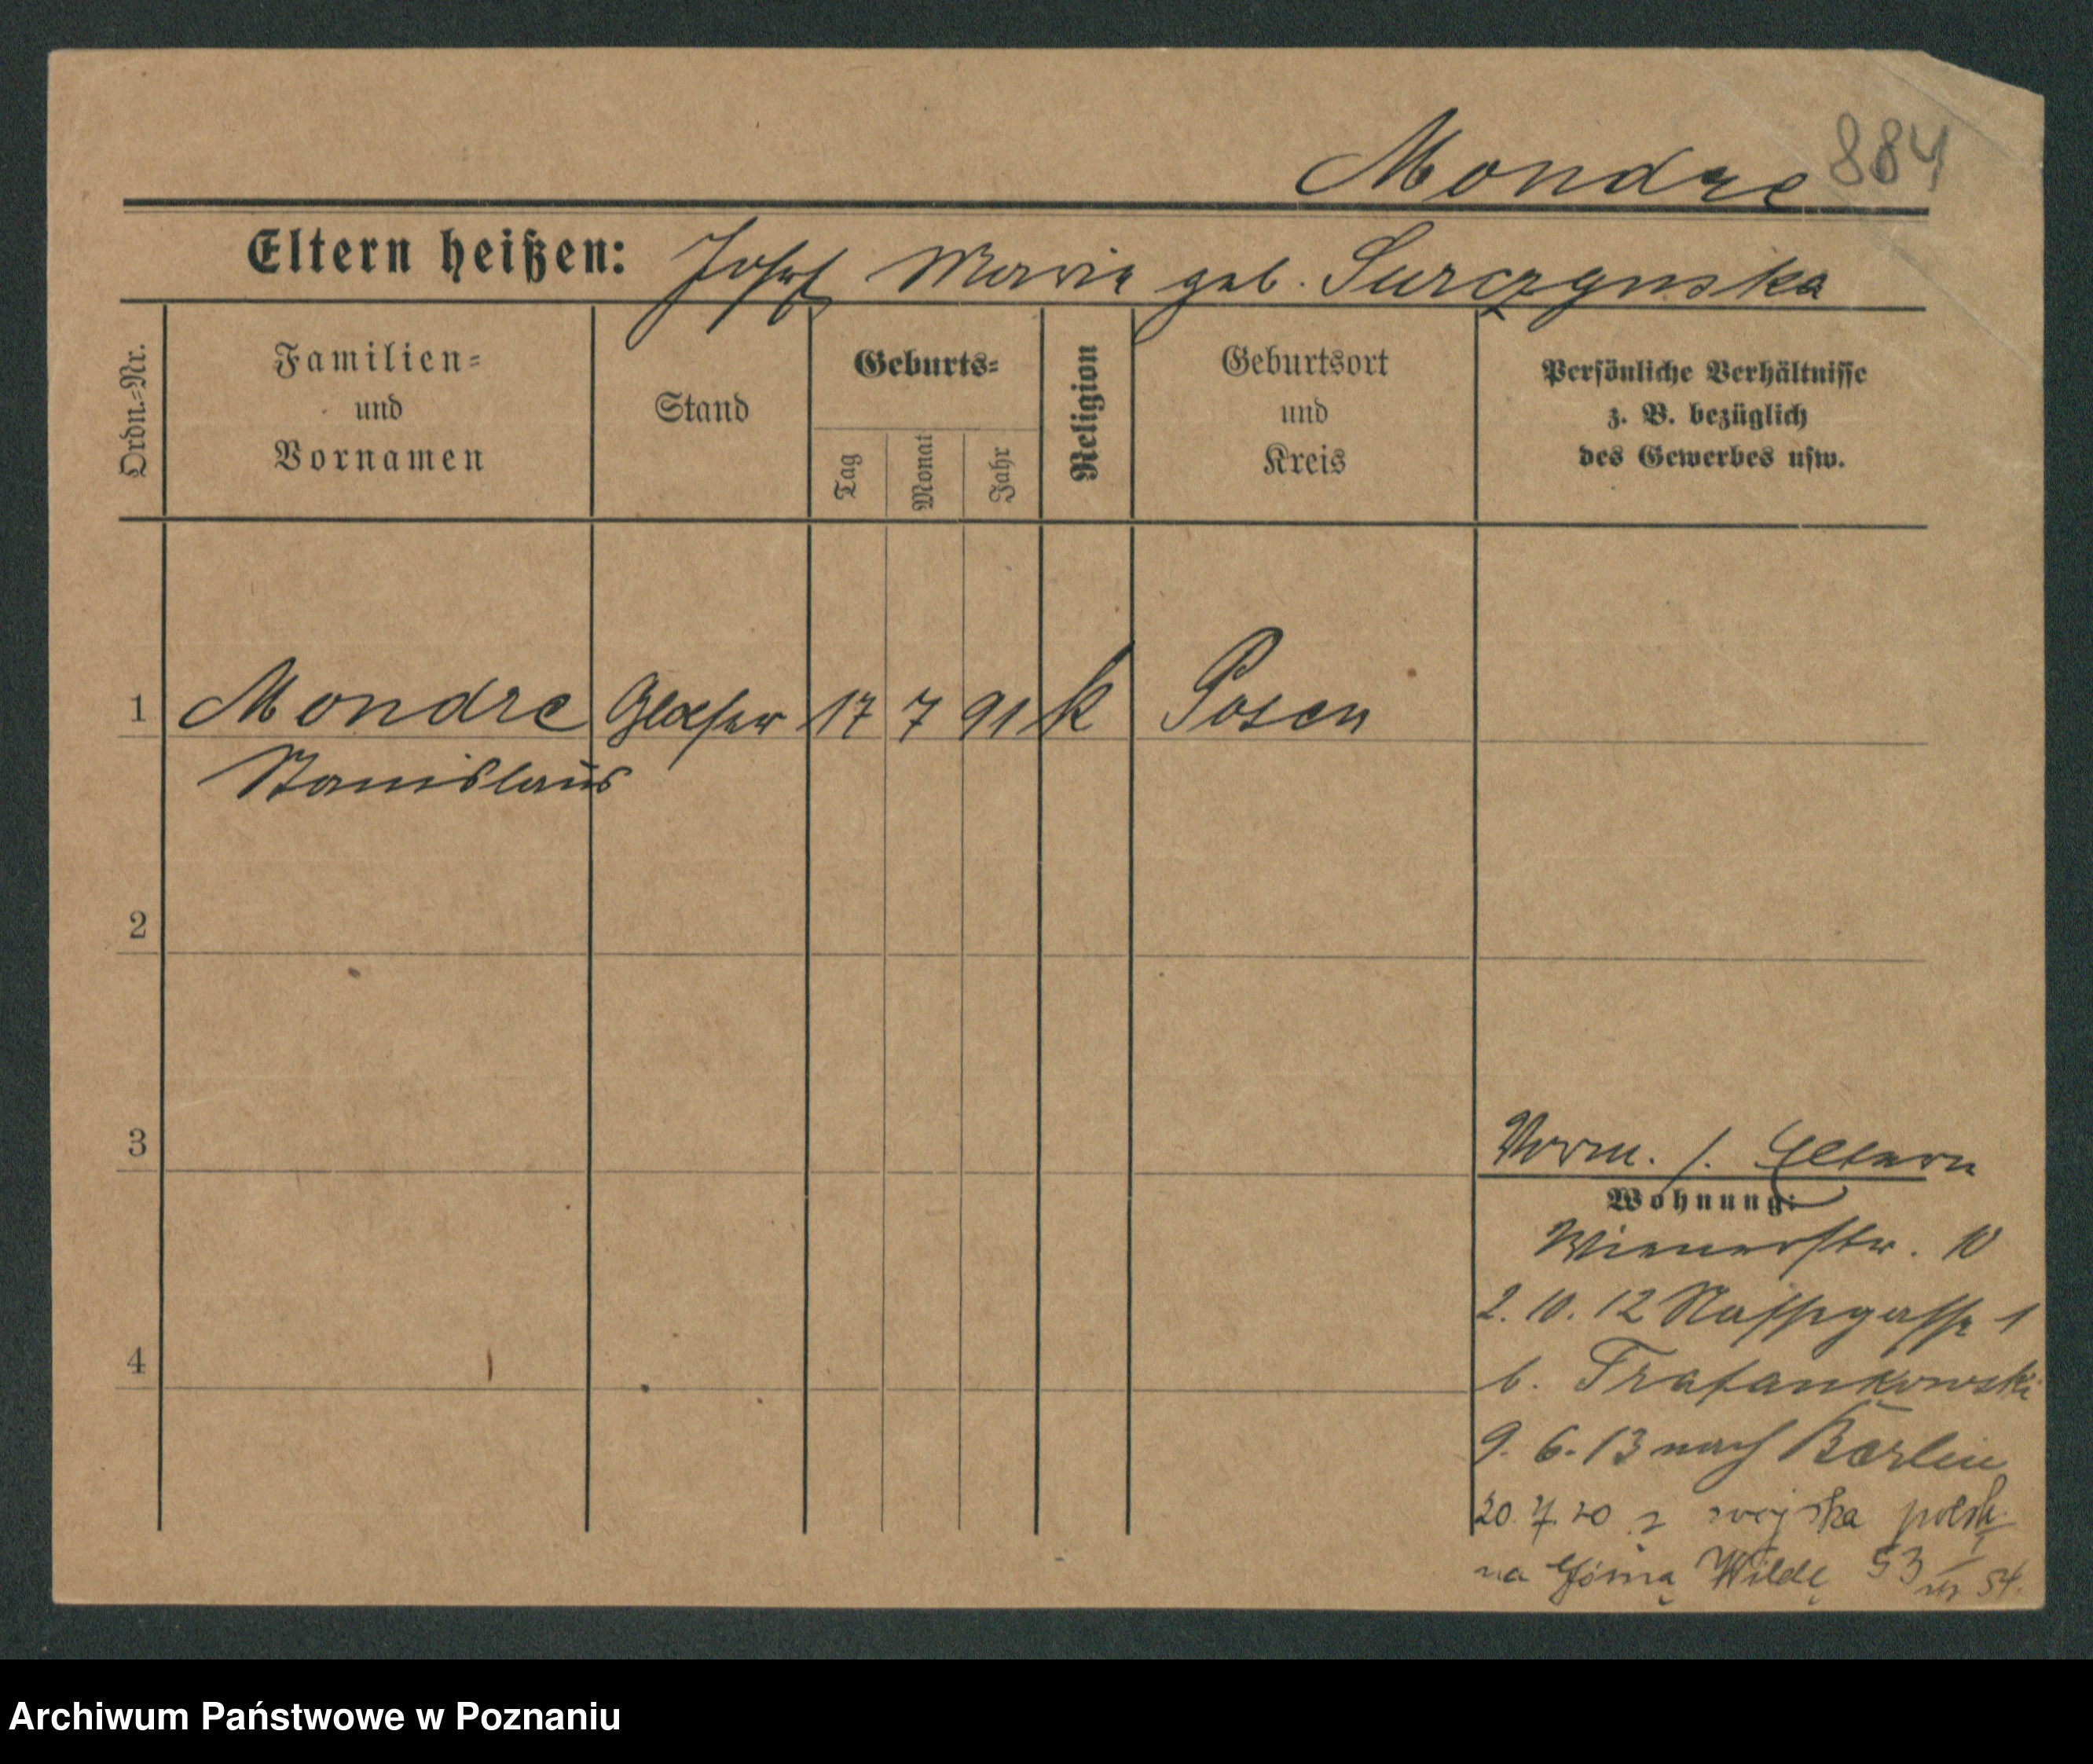 Mondre 884
Eltern heißen: Josef Maria geb. Surczynska
Ordn.-Nr.
Familien-
und
Vornamen
Stand
Geburts-
Tag
Monat
Jahr
Religion
Geburtsort
und
Kreis
Persönliche Verhältnisse
z. B. bezüglich
des Gewerbes usw.
1 Mondre Glaser 17 7 91 k Posen
Stanislaus
2
3
Vorm. s. Eltern
Wohnung:
Wienerstr. 10
2. 10. 12 Nassegasse 1
4
b. Tratankowski
9. 6. 13 nach Berlin
20. 7. 20 z wojska polsk.
na Górną Wildę 53
Archiwum Państwowe w Poznaniu